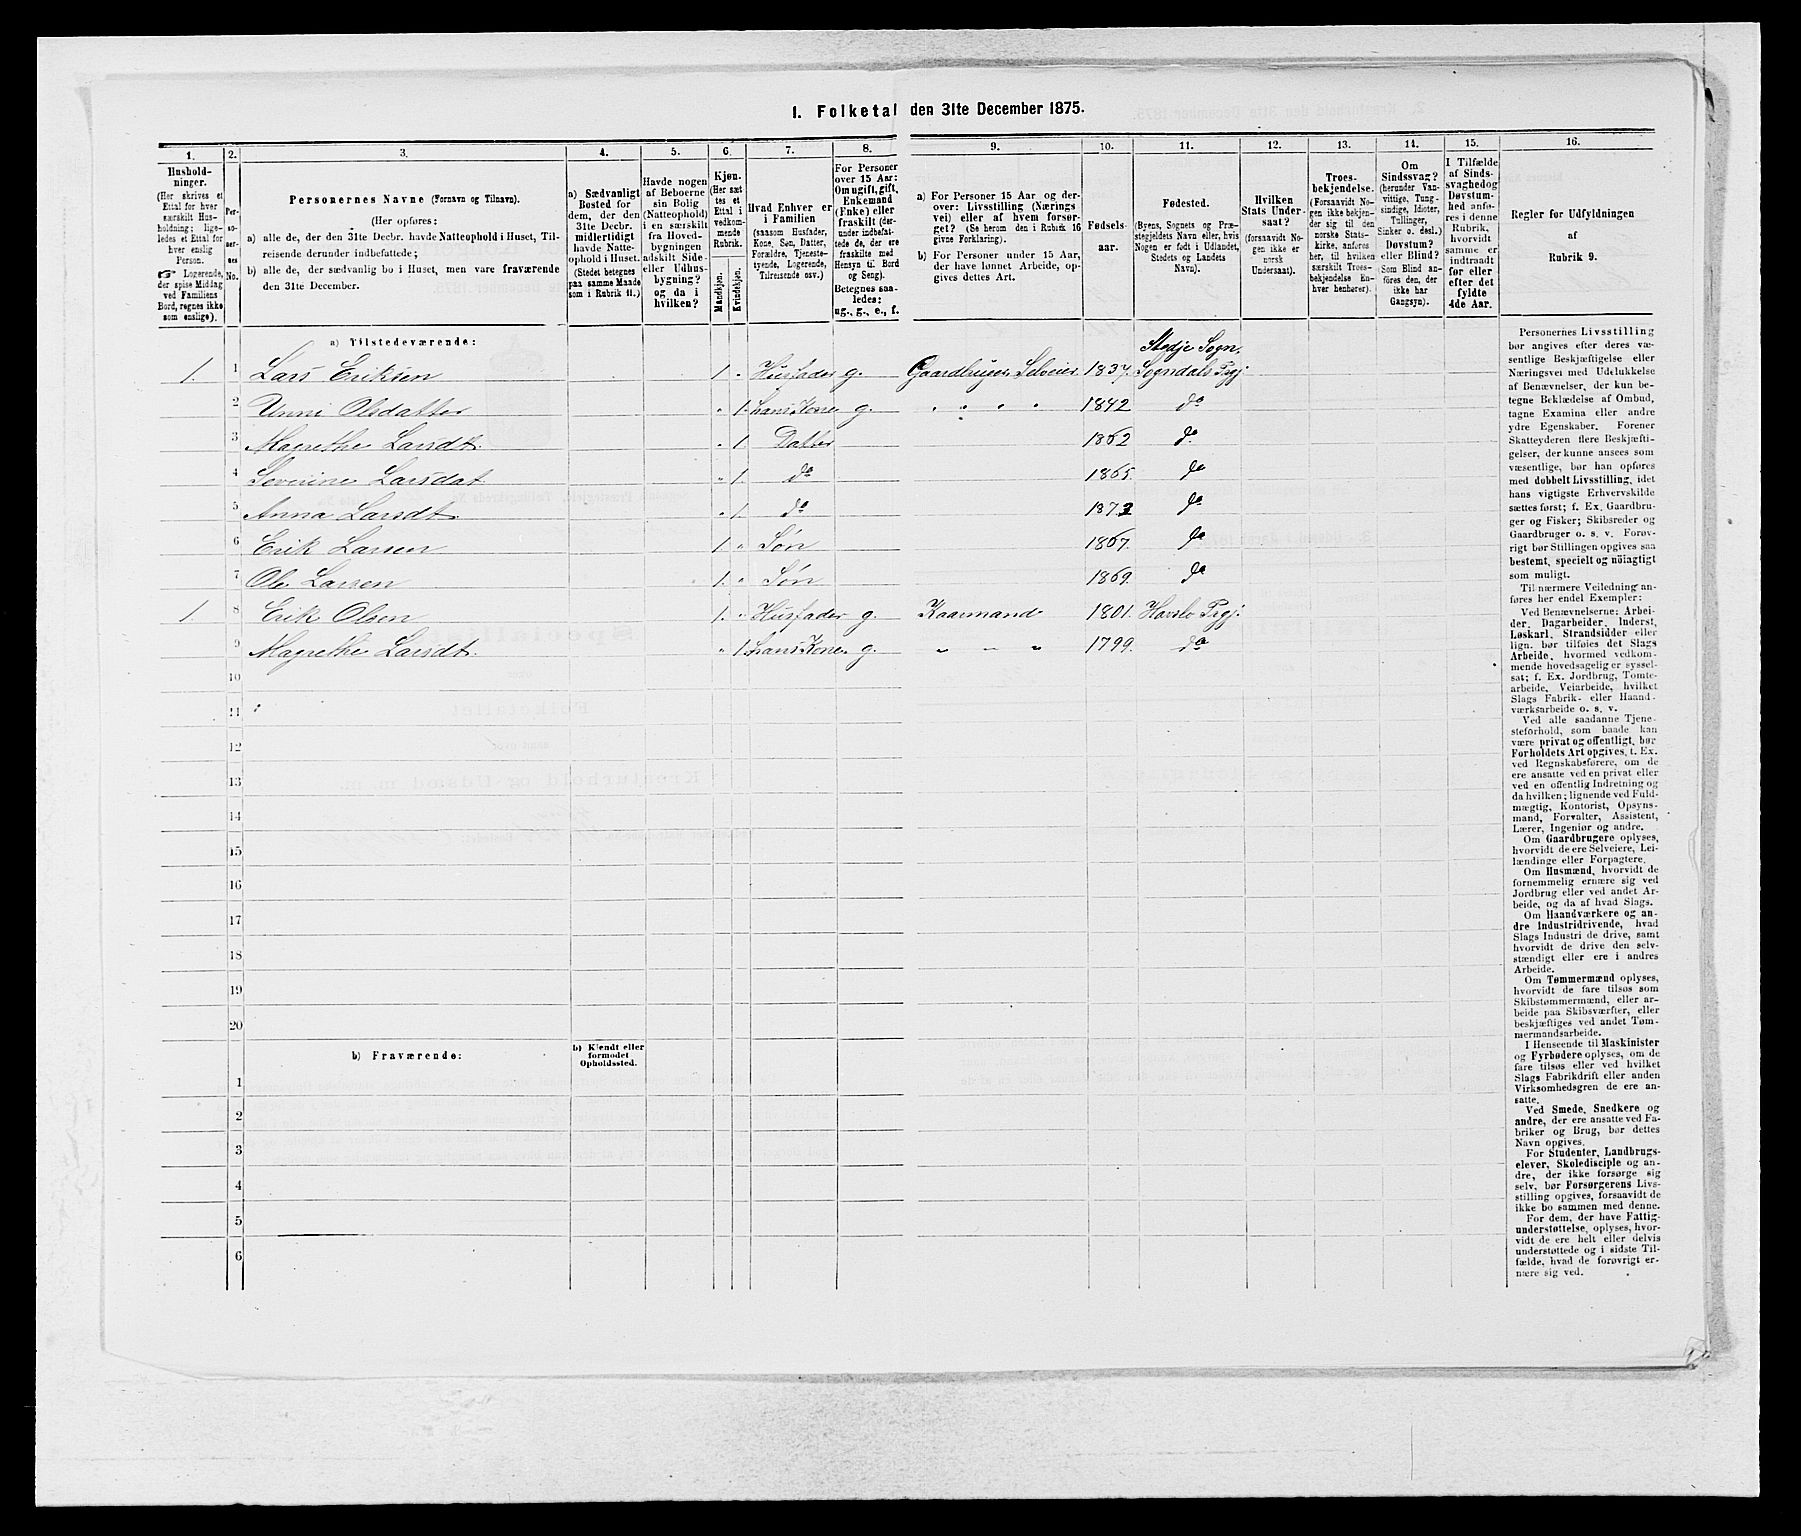 1. Folketal den 31te December 1875.
1. 2. 3. 4. 5. 6. 7. 8. 9. 10. 11. 12. 13. 14. 15. 16.
Hushold-
ninger.
(Her skrives et
Ettal for hver
særskilt Hus-
holdning; lige-
ledes et Ettal for
hver enslig
Person.
☞ Logerende,
der spise Middag
ved Familiens
Bord, regnes ikke
som enslige).
Per-
so-
ner-
nes
No.
Personernes Navne (Fornavn og Tilnavn).
(Her opføres:
a) alle de, der den 31te Decbr. havde Natteophold i Huset, Til-
reisende derunder indbefattede;
b) alle de, der sædvanlig bo i Huset, men vare fraværende
den 31te December.
a) Sædvanligt
Bosted for
dem, der den
31te Decbr.
midlertidigt
havde Natte-
ophold i Huset.
(Stedet betegnes
paa samme Maade
som i Rubrik 11.)
Havde nogen
af Beboerne
sin Bolig
(Natteophold)
i en særskilt
fra Hoved-
bygningen
adskilt Side-
eller Udhus-
bygning?
og da i
hvilken?
Kjøn.
(Her sæt-
tes et
Ettal i
vedkom-
mende
Rubrik.
Mandkjøn.
Kvindekjøn.
Hvad Enhver er
i Familien
(saasom Husfader,
Kone, Søn, Datter,
Forældre, Tjeneste-
tyende, Logerende,
Tilreisende osv.)
For Personer
over 15 Aar:
Om ugift, gift,
Enkemand
(Enke) eller
fraskilt (der-
under indbefat-
tede de, der ere
fraskilte med
Hensyn til Bord
og Seng).
Betegnes saa-
ledes:
ug., g., e., f.
a) For Personer 15 Aar og der-
over: Livsstilling (Nærings
vei) eller af hvem forsør-
get? (Se herom den i Rubrik 16
givne Forklaring).
b) For Personer under 15 Aar,
der have lønnet Arbeide, op-
gives dettes Art.
Fødsels-
aar.
Fødested.
(Byens, Sognets og Præ-
stegjeldets Navn eller, hvis
Nogen er født i Udlandet,
Stedets og Landets
Navn).
Hvilken
Stats Under-
saat?
(forsaavidt No-
gen ikke er
norsk
Undersaat).
Troes-
bekjendelse.
(Forsaavidt No-
gen ikke bekjen-
der sig til den
norske Stats-
kirke, anføres
her, til hvilken
særskilt Troes-
bekjendelse En-
hver henhører).
Om
Sindssvag?
(herunder Van-
vittige, Tung-
sindige, Idioter,
Tullinger,
Sinker o. desl.)
Døvstum?
eller Blind?
(Som Blind an-
føres den, der
ikke har
Gangsyn).
I Tilfælde
af Sinds-
svaghedog
Døvstum-
hed anfø-
res i denne
Rubrik,
hvorvidt
samme er
indtraadt
før eller
efter det
fyldte
4de Aar.
Regler for Udfyldningen
af
Rubrik 9.
a) Tilstedeværende:
Stedje Sogn,
1. 1 Lars Eriksen 1 " Husfader g. Gaardbruger Selveier 1837. Sogndals Prgj.
2 Unni Olsdatter " 1. hans Kone g. " " " " 1842 do
3 Magrethe Larsdt. " 1. Datter 1862 do
4 Severine Larsdat " 1. do 1865. do
5 Anna Larsdt. " 1. do 1873 do
6 Erik Larsen 1. " Søn 1867. do
7 Ole Larsen 1. " Søn 1869. do
1. 8 Erik Olsen 1. " Husfader g. Kaarmand 1801. Havslo Prgj.
9 Magrethe Larsdt. " 1. hans Kone g. " " " 1799. do
10
11
12
13
14
15
16
17
18
19
20
b) Fraværende:
b) Kjendt eller
formodet
Opholdssted.
1
2
3
4
5
6
Personernes Livsstilling
bør angives efter deres væ-
sentlige Beskjæftigelse eller
Næringsvei med Udelukkelse
af Benævnelser, der kun be-
tegne Beklædelse af Ombud,
tagne Examina eller andre
ydre Egenskaber. Forener
Skatteyderen flere Beskjæfti-
gelser, der kunne ansees som
væsentlige, bør han opføres
med dobbelt Livsstilling, idet
hans vigtigste Erhvervskilde
sættes først; f. Ex. Gaardbru-
ger og Fisker; Skibsreder og
Gaardbruger o. s. v. Forøv-
rigt bør Stillingen opgives saa
bestemt, specielt og nöiagtigt
som muligt.
Til nærmere Veiledning an-
føres her endel Exempler:
Ved Benævnelserne: Arbei-
der, Dagarbeider, Inderst,
Løskarl, Strandsidder eller
lign. bør tilføies det Slags
Arbeide, hvormed vedkom-
mende hovedsagelig er syssel-
sat; f. Ex. Jordbrug, Tomte-
arbeide, Veiarbeide, hvilket
Slags Fabrik- eller Haand-
værksarbeide o. s. v.
Ved alle saadanne Tjene-
steforhold, som baade kan
være privat og offentligt, bør
Forholdets Art opgives, t. Ex.
ved Regnskabsførere, om de
ere ansatte ved en privat eller
ved en offentlig Indretning og
da hvilken; lignende ved Fuld-
mægtig, Kontorist, Opsyns-
mand, Forvalter, Assistent,
Lærer, Ingeniør og andre.
Om Gaardbrugere oplyses,
hvorvidt de ere Selveiere, Lei-
lændinge eller Forpagtere.
Om Husmænd, hvorvidt de
fornemmelig ernære sig ved
Jordbrug eller ved andet Ar-
beide, og da af hvad Slags.
Om Haandværkere og an-
dre Industridrivende, hvad
Slags Industri de drive, samt
hvorvidt de drive den selv-
stændigt eller ere i andres
Arbeide.
Om Tømmermænd oplyses,
hvorvidt de fare tilsøs som
Skibstømmermænd, eller ar-
beide paa Skibsværfter, eller
beskjæftiges ved andet Tøm-
mermandsarbeide.
I Henseende til Maskinister
og Fyrbødere oplyses, om de
fare tilsøs eller ved hvilket
Slags Fabrikdrift eller anden
Virksomhedsgren de ere an-
satte.
Ved Smede, Snedkere og
andre, der ere ansatte ved Fa-
briker og Brug, bør dettes
Navn opgives.
For Studenter, Landbrugs-
elever, Skoledisciple og an-
dre, der ikke forsørge sig
selv, bør Forsørgerens Livs-
stilling opgives, forsaavidt de
ikke bo sammen med denne.
For dem, der have Fattig-
understøttelse, oplyses, hvor-
vidt de ere helt eller delvis
understøttede og i sidste Til-
fælde, hvad de forøvrigt er-
nære sig ved.